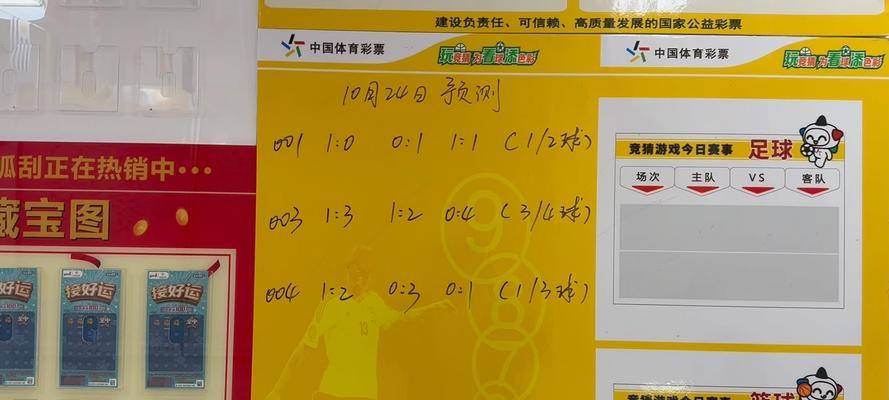 建设负责任、可信赖、高质量发展的国家公益彩票
中国体育彩票 玩竞猜 为看球添色彩
中国体育彩票 玩竞猜 为看球添色彩
10月24日 预测
001 1:0 0:1 1:1 (1/2球)
003 1:3 1:2 0:4 (3/4球)
004 1:2 0:3 0:1 (1/3球)
竞猜游戏今日赛事 足球
场次 主队 VS 客队
竞猜游戏今日赛事 篮球
瓜刮正在热销中···
藏宝图
接好运
接好运
9
8
7
13